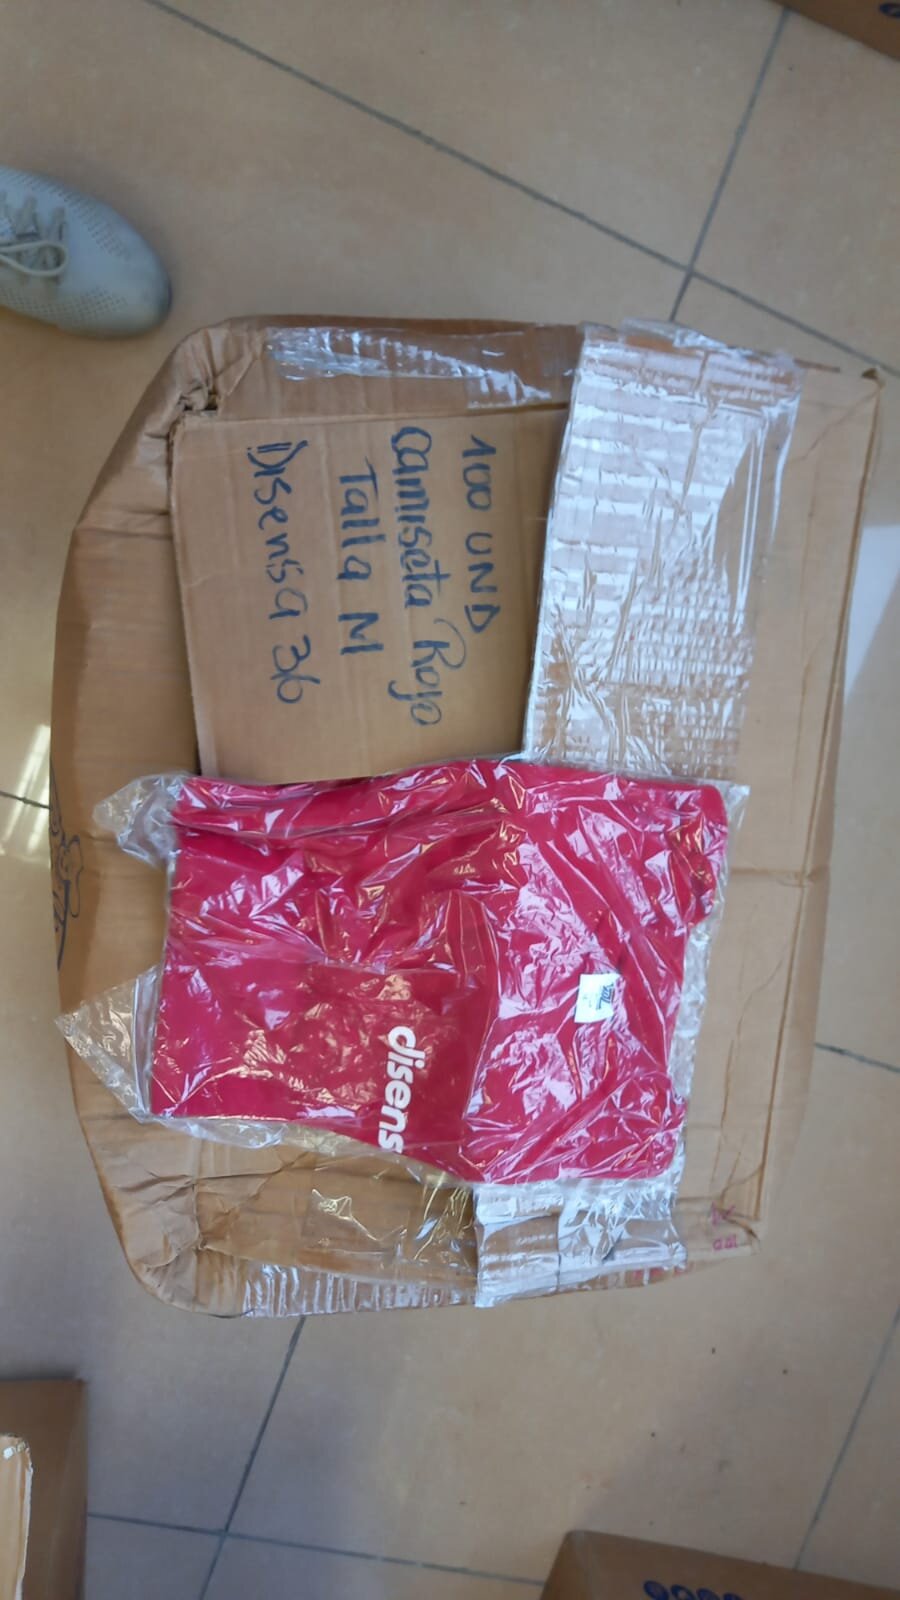 100 UND
Camiseta Rojo
Talla M
Disensa 36
disens